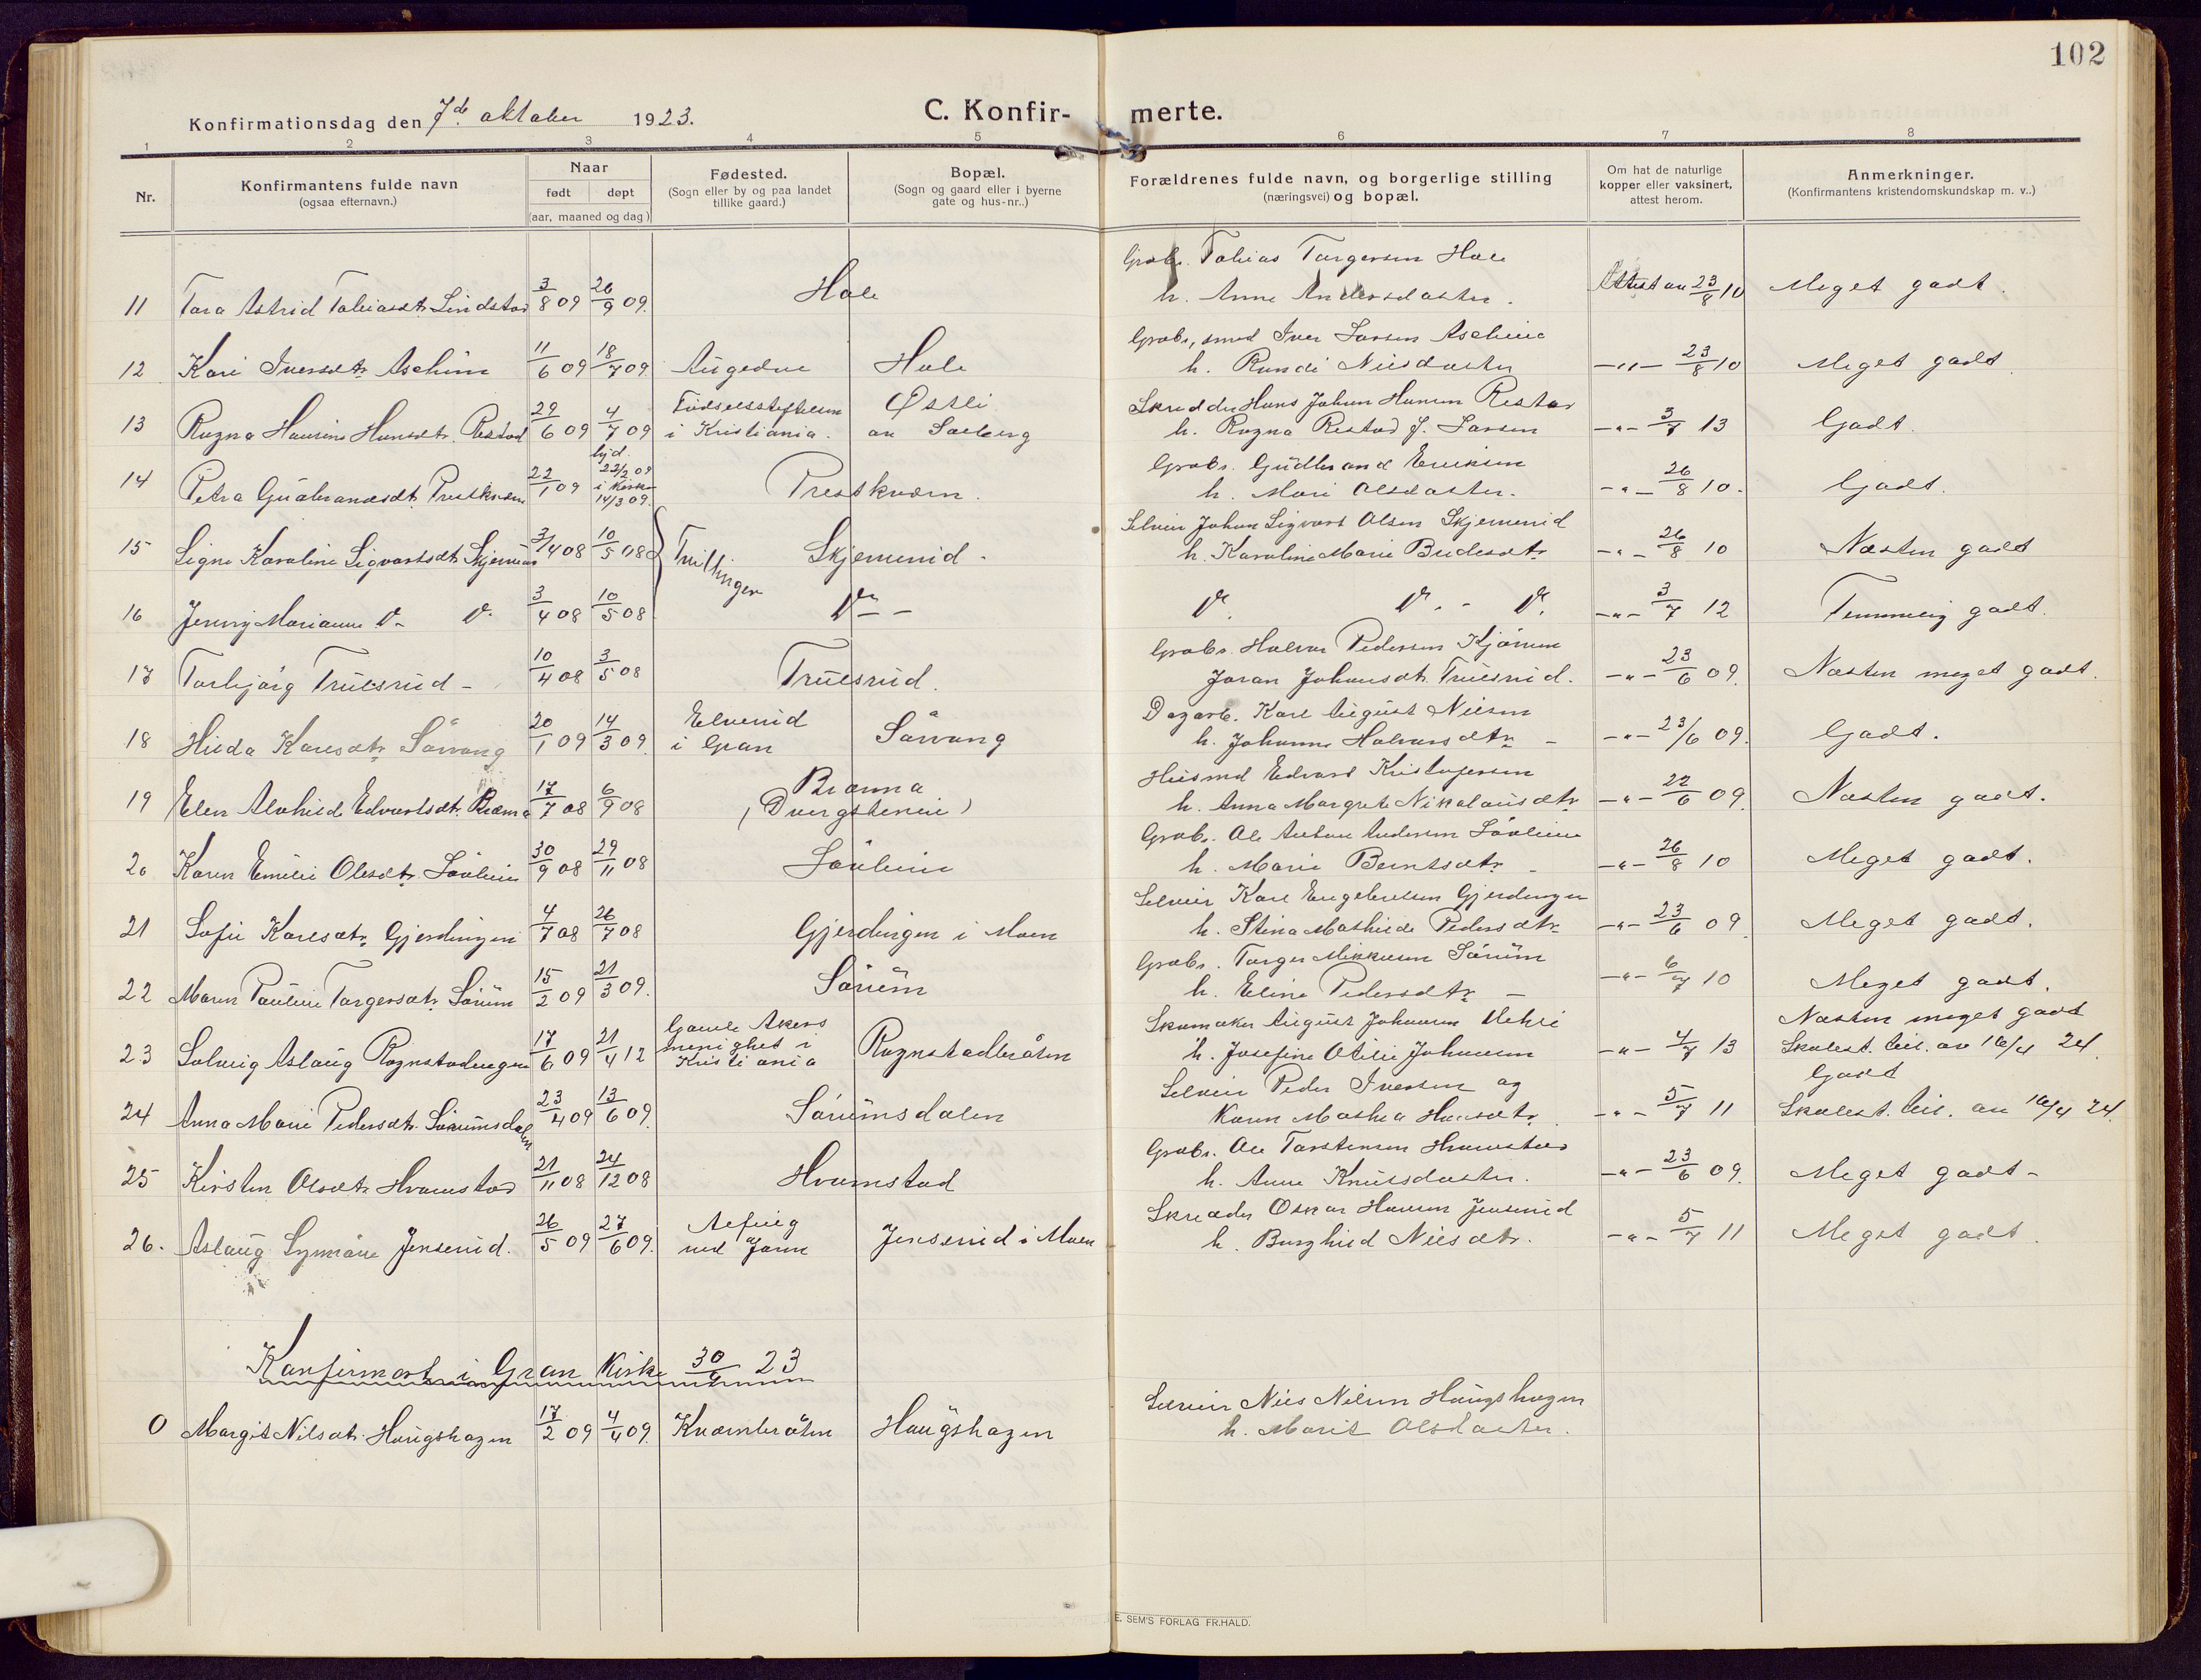 102
Konfirmationsdag den 7de oktober 1923.
C. Konfir- merte.
1 2 3 4 5 6 7 8
Nr.
Konfirmantens fulde navn
(ogsaa efternavn.)
Naar
født døpt
(aar, maaned og dag)
Fødested.
(Sogn eller by og paa landet
tillike gaard.)
Bopæl.
(Sogn og gaard eller i byerne
gate og hus-nr.)
Forældrenes fulde navn, og borgerlige stilling
(næringsvei) og bopæl.
Om hat de naturlige
kopper eller vaksinert,
attest herom.
Anmerkninger.
(Konfirmantens kristendomskundskap m. v..)
Grubr. Tobias Torgersen Hole
11 Tora Astrid Tobiasdtr. Lindstad 3/8 09 26/9 09. Hole h. Anne Andersdatter. Attest av 23/8 10 Meget godt.
Grubr, smed Iver Larsen Aschim
12 Kari Iversdtr. Aschim 11/6 09 18/7 09. Augedue Hole h. Randi Nilsdatter -"- 23/8 10 Meget godt.
Fødselsstiftelsen Østli Skredder Hans Johan Hansen Restad
13 Ragna Hansine Hansdtr. Restad 29/6 09 4/7 09 i Kristiania. av Solberg h. Ragna Restad f. Larsen -"- 3/7 13 Godt.
hjd. 22/2 09 Grubr. Gudbrand Eriksen
14 Petra Gudbrandsdt. Prestkværn 22/1 09 i kirke 14/3 09. Prestkværn. h. Mari Olsdatter. -"- 26/8 10. Godt.
Selveier Johan Sigvart Olsen Skjerverud
15 Signe Karoline Sigvartsdt. Skjerverud 3/4 08 10/5 08 Tvillinger Skjerverud. h. Karoline Marie Bredesdtr. -"- 26/8 10 Næsten godt
16 Jenny Marianne D- D. 3/4 08 10/5 08 D-- D. D. - D. -"- 3/7 12 Temmelig godt.
Grubr. Halvor Pedersen Kjørven
17 Torbjørg Trulsrud - 10/4 08 3/5 08 Trulsrud. Joran Johansdtr. Trulsrud. -"- 23/6 09. Næsten meget godt.
Elverud Dagarb. Karl August Nilsen
18 Hilda Karlsdtr. Sørvang 20/1 09 14/3 09. i Gran Sørvang h. Johanne Halvorsdtr. - -"- 23/6 09. Godt.
Brænna Husmd Edvard Kristofersen
19 Elen Alvhild Edvardsdt. Brænna 17/7 08 6/9 08 (Dvergsteneie) h. Anna Margrete Nikolaisdtr. -"- 22/6 09. Næsten godt.
Grubr. Ole Anton Andersen Søvlien
20 Karen Emilie Olesdtr. Søvlien 30/9 08 29/11 08 Søvlien h. Marie Berntsdtr. - -"- 26/8 10 Meget godt.
Selveier Karl Engebretsen Gjerdingen
21 Sofie Karlsdtr. Gjerdingen 4/7 08 26/7 08 Gjerdingen i Moen h. Stina Mathilde Pedersdtr. -"- 23/6 09. Meget godt.
Grubr. Torger Mikkelsen Sørum
22 Maren Pauline Torgersdtr. Sørum 15/2 09 21/3 09. Sørum h. Eline Pedersdtr. - -"- 6/7 10 Meget godt.
Gamle Akers Skomaker August Johansen Næsten meget godt
23 Solveig Aslaug Rognstadengen 17/6 09 21/4 12 menighet i Kristiania Rognstadbråten h. Josefine Otilie Johansen -"- 4/7 13 Skolest. bil. av 16/4 24.
Selveier Peder Iversen og Godt
24 Anna Marie Pedersdtr. Sørumsdalen 23/4 09 13/6 09. Sørumsdalen Karen Mathea Hansdtr. -"- 5/7 11 Skolest. bil. av 16/4 24.
Grubr. Ole Torstensen Hvamstad
25 Kirsten Olsdtr. Hvamstad 21/11 08 24/12 08 Hvamstad h. Anne Knutsdatter. -"- 23/6 09. Meget godt-
Skredder Oskar Hansen Jenserud
26. Aslaug Synnøve Jenserud. 26/5 09 27/6 09. ned Jaren Jenserud i Moen h. Borghild Nilsdtr. -"- 5/7 11 Meget godt.
Konfirmert i Gran kirke 30/9 23
Selveier Nils Nilsen Haugshagen
0 Margit Nilsdtr. Haugshagen 17/2 09 4/4 09. Kværnbråten Haugshagen h. Marit Olsdatter.
E. SEM'S FORLAG FR.HALD.